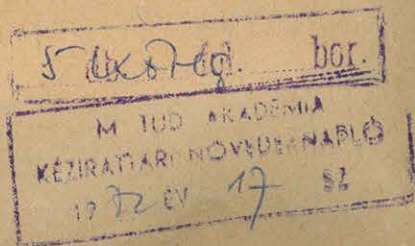 bor.
M. TUD. AKADÉMIA
KÉZIRATTÁRI NÖVEDÉKNAPLÓ
1972 ÉV 17 SZ.